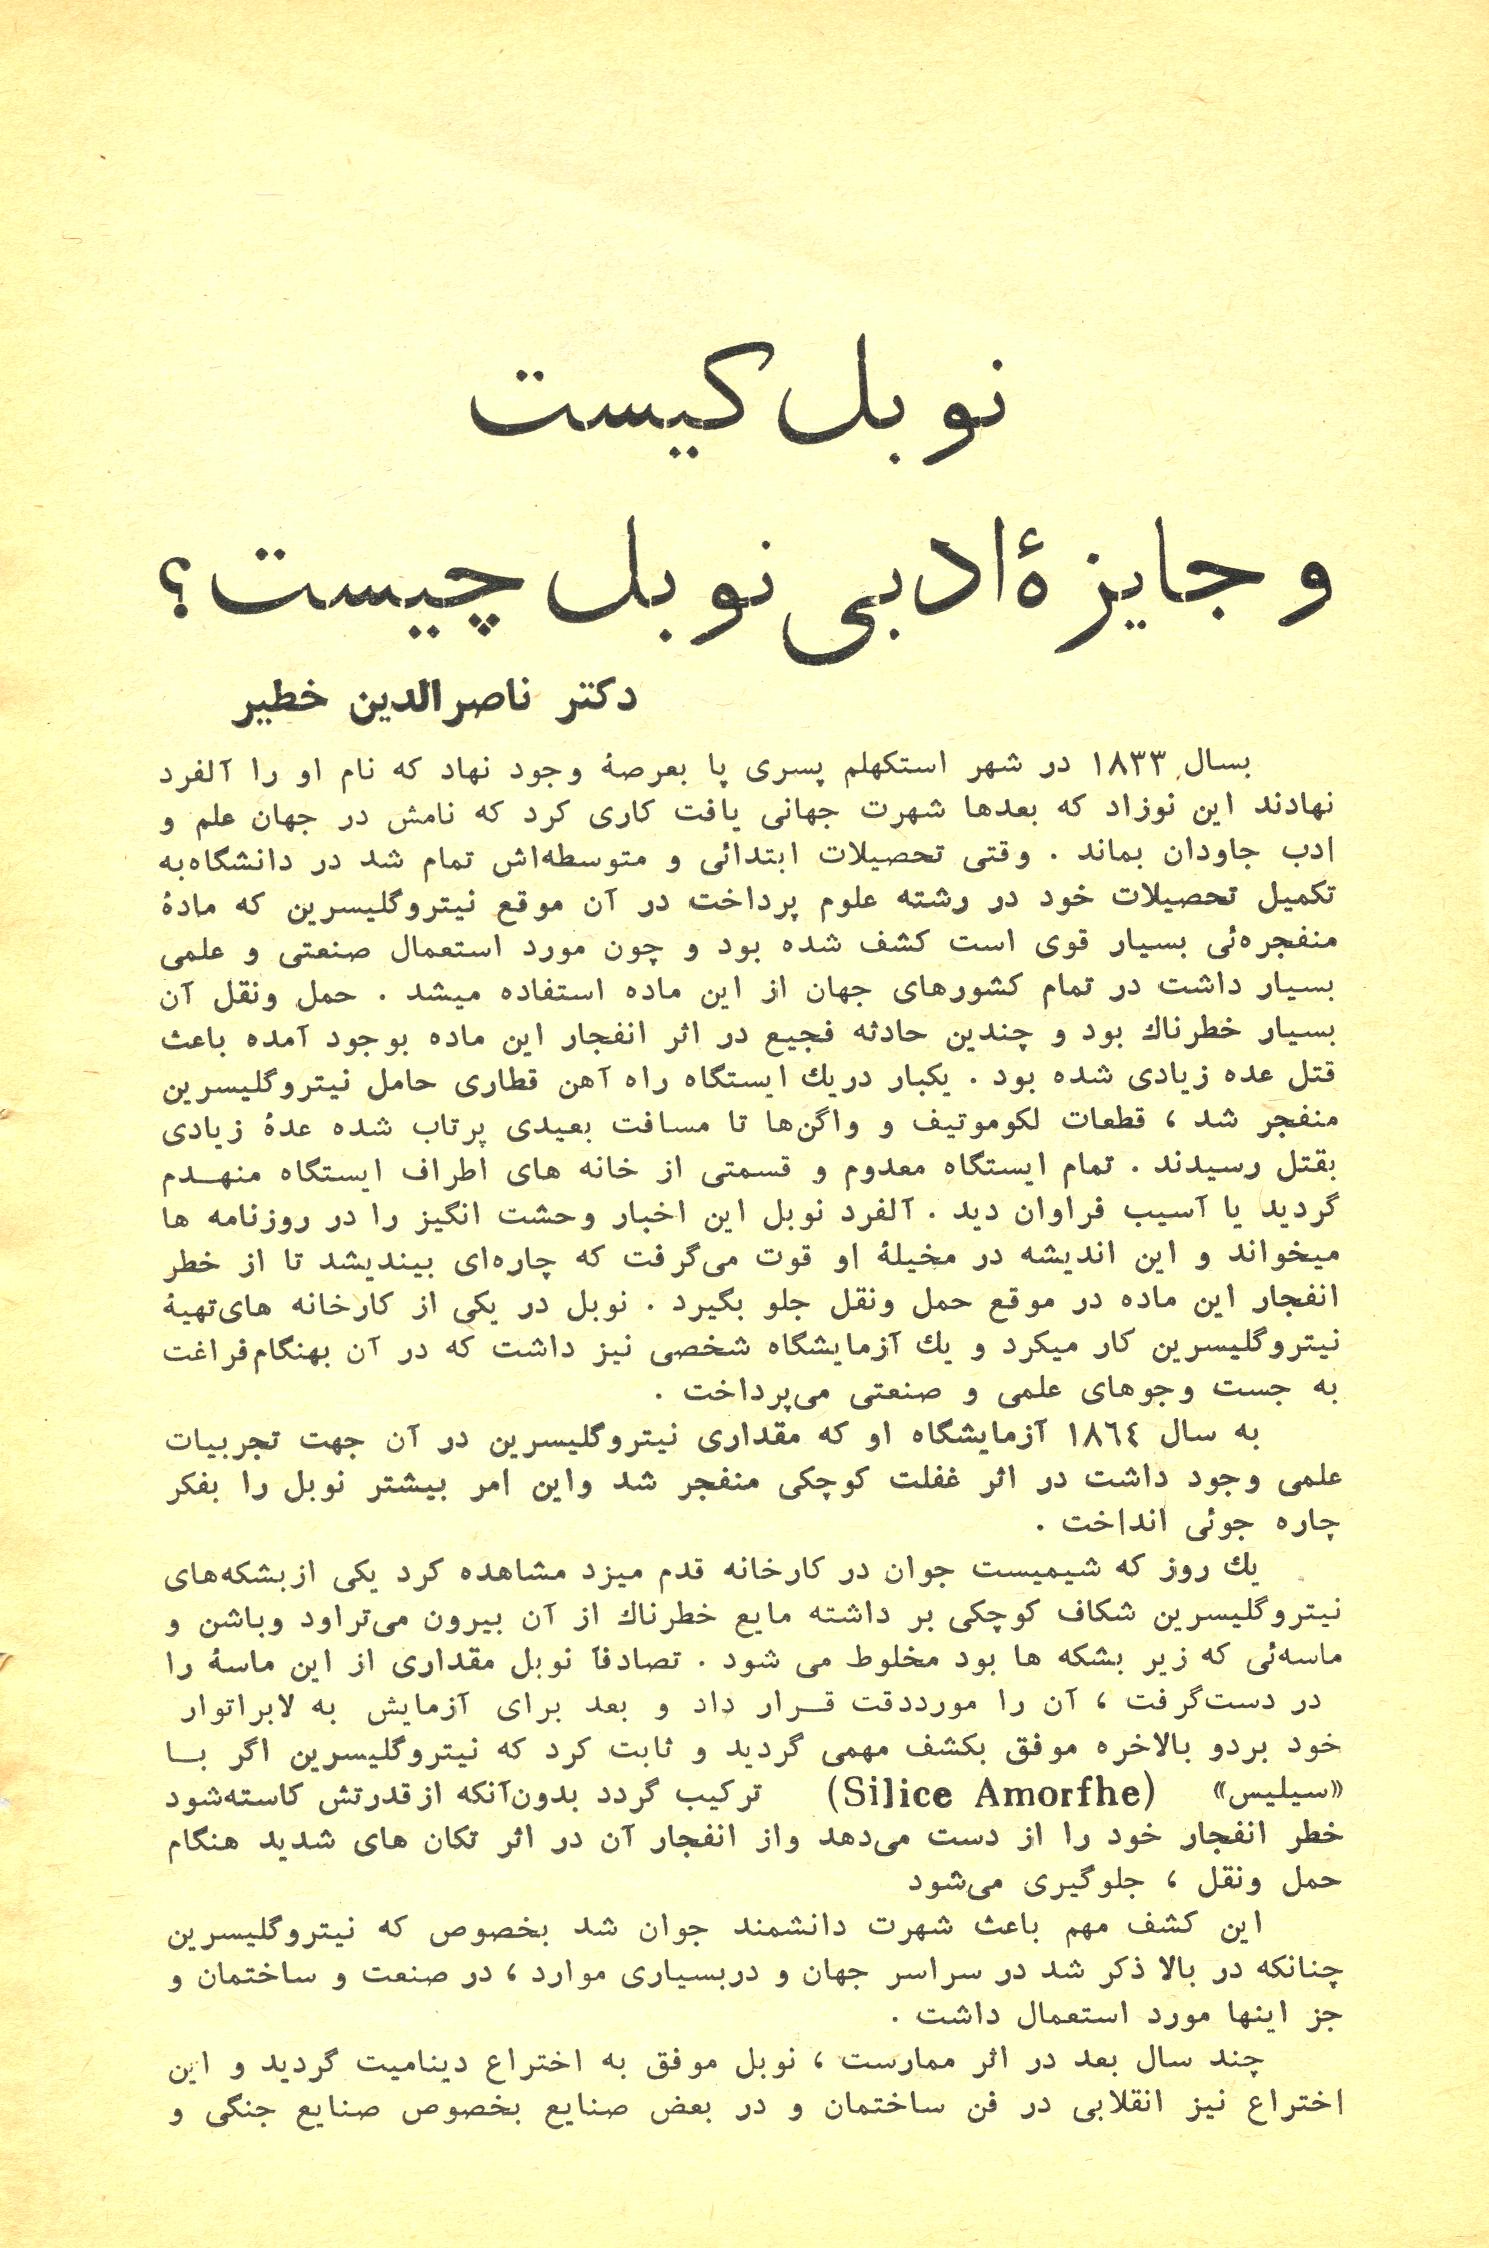 نوبل کیست
و جایزهٔ ادبی نوبل چیست؟
دکتر ناصرالدین خطیر
بسال ۱۸۳۳ در شهر استکهلم پسری پا بعرصهٔ وجود نهاد که نام او را آلفرد
نهادند این نوزاد که بعدها شهرت جهانی یافت کاری کرد که نامش در جهان علم و
ادب جاودان بماند . وقتی تحصیلات ابتدائی و متوسطه‌اش تمام شد در دانشگاه به
تکمیل تحصیلات خود در رشته علوم پرداخت در آن موقع نیتروگلیسرین که مادهٔ
منفجره‌ئی بسیار قوی است کشف شده بود و چون مورد استعمال صنعتی و علمی
بسیار داشت در تمام کشورهای جهان از این ماده استفاده میشد . حمل ونقل آن
بسیار خطرناك بود و چندین حادثه فجیع در اثر انفجار این ماده بوجود آمده باعث
قتل عده زیادی شده بود . یکبار دریك ایستگاه راه آهن قطاری حامل نیتروگلیسرین
منفجر شد ، قطعات لکوموتیف و واگن‌ها تا مسافت بعیدی پرتاب شده عدهٔ زیادی
بقتل رسیدند . تمام ایستگاه معدوم و قسمتی از خانه های اطراف ایستگاه منهـدم
گردید یا آسیب فراوان دید . آلفرد نوبل این اخبار وحشت انگیز را در روزنامه ها
میخواند و این اندیشه در مخیلهٔ او قوت می‌گرفت که چاره‌ای بیندیشد تا از خطر
انفجار این ماده در موقع حمل ونقل جلو بگیرد . نوبل در یکی از کارخانه های تهیهٔ
نیتروگلیسرین کار میکرد و یك آزمایشگاه شخصی نیز داشت که در آن بهنگام فراغت
به جست وجوهای علمی و صنعتی می‌پرداخت .
به سال ۱۸٦٤ آزمایشگاه او که مقداری نیتروگلیسرین در آن جهت تجربیات
علمی وجود داشت در اثر غفلت کوچکی منفجر شد واین امر بیشتر نوبل را بفکر
چاره جوئی انداخت .
یك روز که شیمیست جوان در کارخانه قدم میزد مشاهده کرد یکی از بشکه‌های
نیتروگلیسرین شکاف کوچکی بر داشته مایع خطرناك از آن بیرون می‌تراود وباشن و
ماسه‌ئی که زیر بشکه ها بود مخلوط می شود . تصادفاً نوبل مقداری از این ماسهٔ را
در دست گرفت ، آن را مورددقت قـرار داد و بعد برای آزمایش به لابراتوار
خود بردو بالاخره موفق بکشف مهمی گردید و ثابت کرد که نیتروگلیسرین اگر بـا
«سیلیس» (Silice Amorfhe) ترکیب گردد بدون‌آنکه از قدرتش کاسته‌شود
خطر انفجار خود را از دست می‌دهد واز انفجار آن در اثر تکان های شدید هنگام
حمل ونقل ، جلوگیری می‌شود
این کشف مهم باعث شهرت دانشمند جوان شد بخصوص که نیتروگلیسرین
چنانکه در بالا ذکر شد در سراسر جهان و دربسیاری موارد ، در صنعت و ساختمان و
جز اینها مورد استعمال داشت .
چند سال بعد در اثر ممارست ، نوبل موفق به اختراع دینامیت گردید و این
اختراع نیز انقلابی در فن ساختمان و در بعض صنایع بخصوص صنایع جنگی و